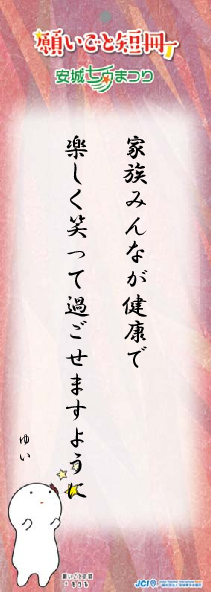 願いごと短冊
安城七夕まつり
家族みんなが健康で
楽しく笑って過ごせますように
ゆい
願いごと短冊
JCI